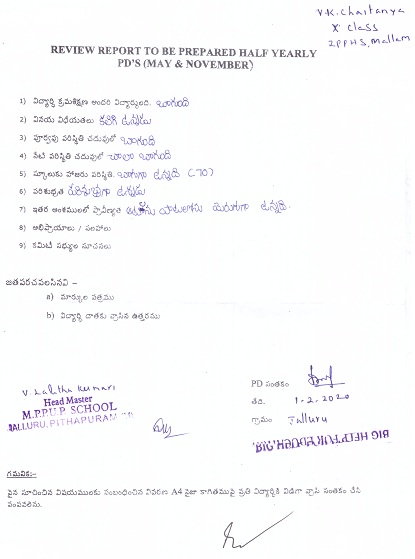 V.K. Chaitanya
X Class
ZPPHS, Mallam
REVIEW REPORT TO BE PREPARED HALF YEARLY
PD'S (MAY & NOVEMBER)
1) విద్యార్థి క్రమశిక్షణ అందరి విద్యార్థులది. బాగుంది
2) వినయ విధేయతలు కలిగి ఉన్నాడు
3) పూర్వపు పరిస్థితి చదువులో బాగుంది
4) నేటి పరిస్థితి చదువులో చాలా బాగుంది
5) స్కూలుకు హాజరు పరిస్థితి. బాగుగా ఉన్నది (70)
6) పరిశుభ్రత పరిశుభ్రంగా ఉన్నాడు
7) ఇతర అంశములలో ప్రావీణ్యత మెరుగుగా ఉన్నది.
8) అభిప్రాయాలు / సలహాలు
9) కమిటీ సభ్యుల సూచనలు
జతపరచవలసినవి –
a) మార్కుల పత్రము
b) విద్యార్థి దాతకు వ్రాసిన ఉత్తరము
PD సంతకం
V Lalitha Kumari
Head Master
తేది. 1-2-2020
M.P.P.U.P SCHOOL
గ్రామం Jalluru
JALLURU, PITHAPURAM
BIG HELP FOR EDUCATION
గమనిక:-
పైన సూచించిన విషయములకు సంబంధించిన వివరణ A4 సైజు కాగితముపై ప్రతి విద్యార్థికి విడిగా వ్రాసి సంతకం చేసి
పంపవలెను.